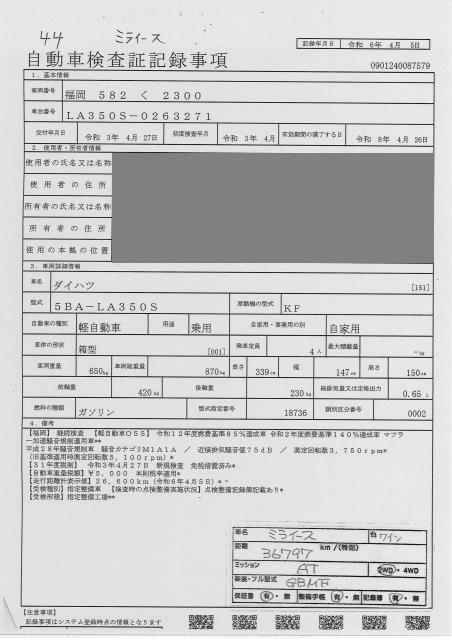 44 ミライース
記録年月日 令和 6年 4月 5日
自動車検査証記録事項
0901240087579
1. 基本情報
車両番号 福岡 582 く 2300
車台番号 LA350S-0263271
交付年月日 令和 3年 4月 27日 初度検査年月 令和 3年 4月 有効期間の満了する日 令和 8年 4月 26日
2. 使用者・所有者情報
使用者の氏名又は名称
使用者の住所
所有者の氏名又は名称
所有者の住所
使用の本拠の位置
3. 車両詳細情報
車名 ダイハツ [151]
型式 5BA-LA350S 原動機の型式 KF
自動車の種別 軽自動車 用途 乗用 自家用・事業用の別 自家用
車体の形状 箱型 [001] 乗車定員 4人 最大積載量 -kg
車両重量 650kg 車両総重量 870kg 長さ 339cm 幅 147cm 高さ 150cm
前軸重 420kg 後軸重 230kg 総排気量又は定格出力 0.65 L
燃料の種類 ガソリン 型式指定番号 18736 類別区分番号 0002
4. 備考
【福岡】 継続検査 【軽自動車OSS】 令和12年度燃費基準85%達成車 令和2年度燃費基準140%達成車 マフラ
ー加速騒音規制適用車**
平成28年騒音規制車 騒音カテゴリM1A1A / 近接排気騒音値75dB / 測定回転数3,750rpm*
(旧基準適用時測定回転数5,100rpm)*
【31年度税制】 令和3年4月27日 新規検査 免税措置済み*
【自動車重量税額】¥5,000 本則税率適用*
【走行距離計表示値】26,600km (令和6年4月5日)*
【受検種別】指定整備車 【検査時の点検整備実施状況】点検整備記録簿記載あり*
【受検形態】指定整備工場**
車名 ミライース 色 ワイン
距離 36797 km / (特記)
ミッション AT 2WD・4WD
架装・フル型式 GBMF
保証書 有・無 整備手帳 有・無 記録簿 有・無
【注意事項】
記録事項はシステム登録時点の情報となります